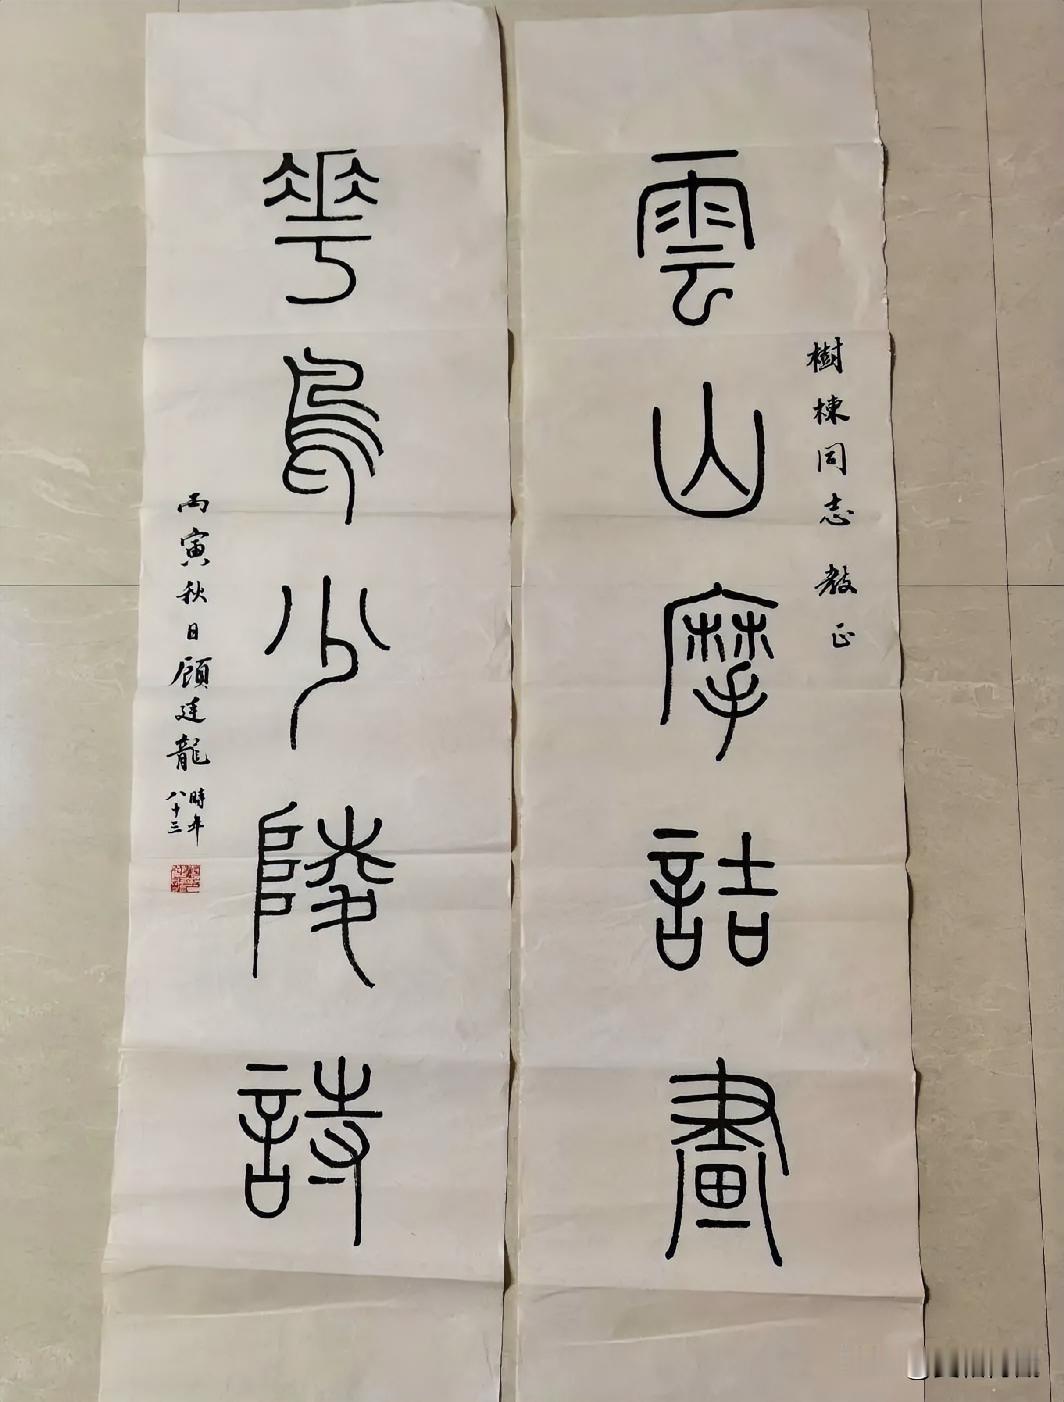 樹棟同志教正
雲山摩詰畫
華鳥少陵詩
丙寅秋日顧廷龍時年八十三